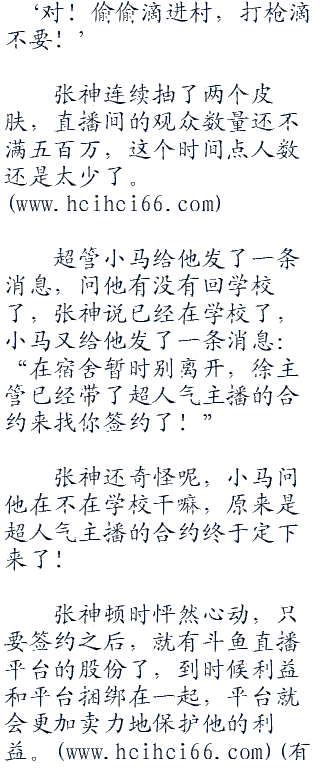 ‘对！偷偷滴进村，打枪滴
不要！’
张神连续抽了两个皮
肤，直播间的观众数量还不
满五百万，这个时间点人数
还是太少了。
(www.hcihci66.com)
超管小马给他发了一条
消息，问他有没有回学校
了，张神说已经在学校了，
小马又给他发了一条消息：
“在宿舍暂时别离开，徐主
管已经带了超人气主播的合
约来找你签约了！”
张神还奇怪呢，小马问
他在不在学校干嘛，原来是
超人气主播的合约终于定下
来了！
张神顿时怦然心动，只
要签约之后，就有斗鱼直播
平台的股份了，到时候利益
和平台捆绑在一起，平台就
会更加卖力地保护他的利
益。(www.hcihci66.com)(有